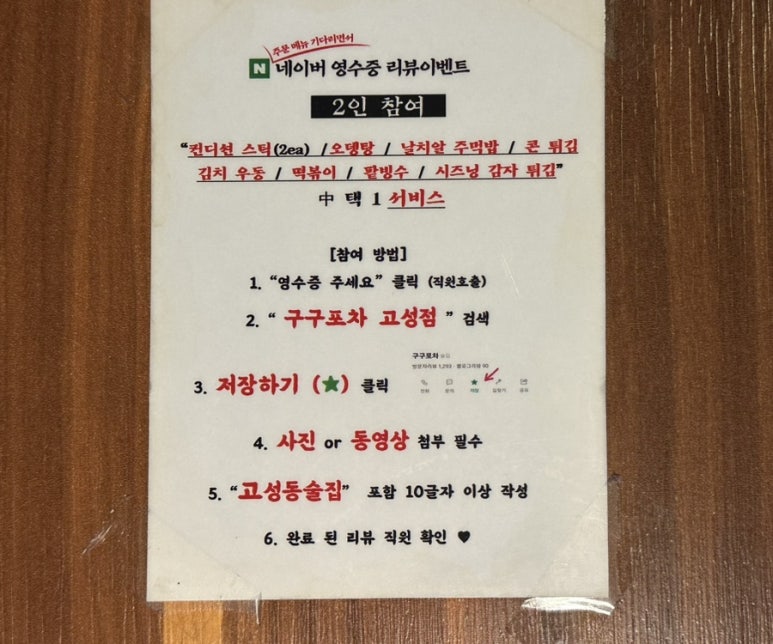 주문 메뉴 기다리면서
N 네이버 영수증 리뷰이벤트
2인 참여
“컨디션 스틱(2ea) / 오뎅탕 / 날치알 주먹밥 / 콘 튀김
김치 우동 / 떡볶이 / 팥빙수 / 시즈닝 감자 튀김”
中 택 1 서비스
[참여 방법]
1. “영수증 주세요” 클릭 (직원호출)
2. “ 구구포차 고성점 ” 검색
구구포차 술집
방문자리뷰 1,293 · 블로그리뷰 90
3. 저장하기 (★) 클릭
전화 문의 저장 길찾기 공유
4. 사진 or 동영상 첨부 필수
5. “고성동술집” 포함 10글자 이상 작성
6. 완료 된 리뷰 직원 확인 ♥